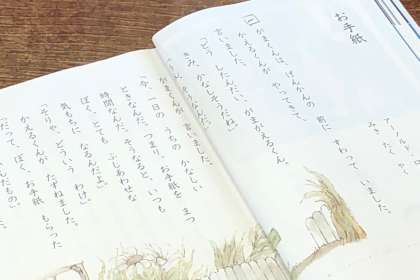 お手紙
アーノルド=
みき たく や
がまくんは、げんかんの 前に すわって いました。
かえるくんが やって きて、
言いました。
「どう したんだい、がまがえるくん。
きみ、かなしそうだね。」
がまくんが 言いました。
「今、一日の うちの かなしい
ときなんだ。つまり、お手紙を まつ
時間なんだ。そうなると、いつも
ぼく、とても ふしあわせな
気もちに なるんだよ。」
「そりゃ、どういう わけ。」
かえるくんが たずねました。
「だって、ぼく、お手紙 もらった
んだもの。」